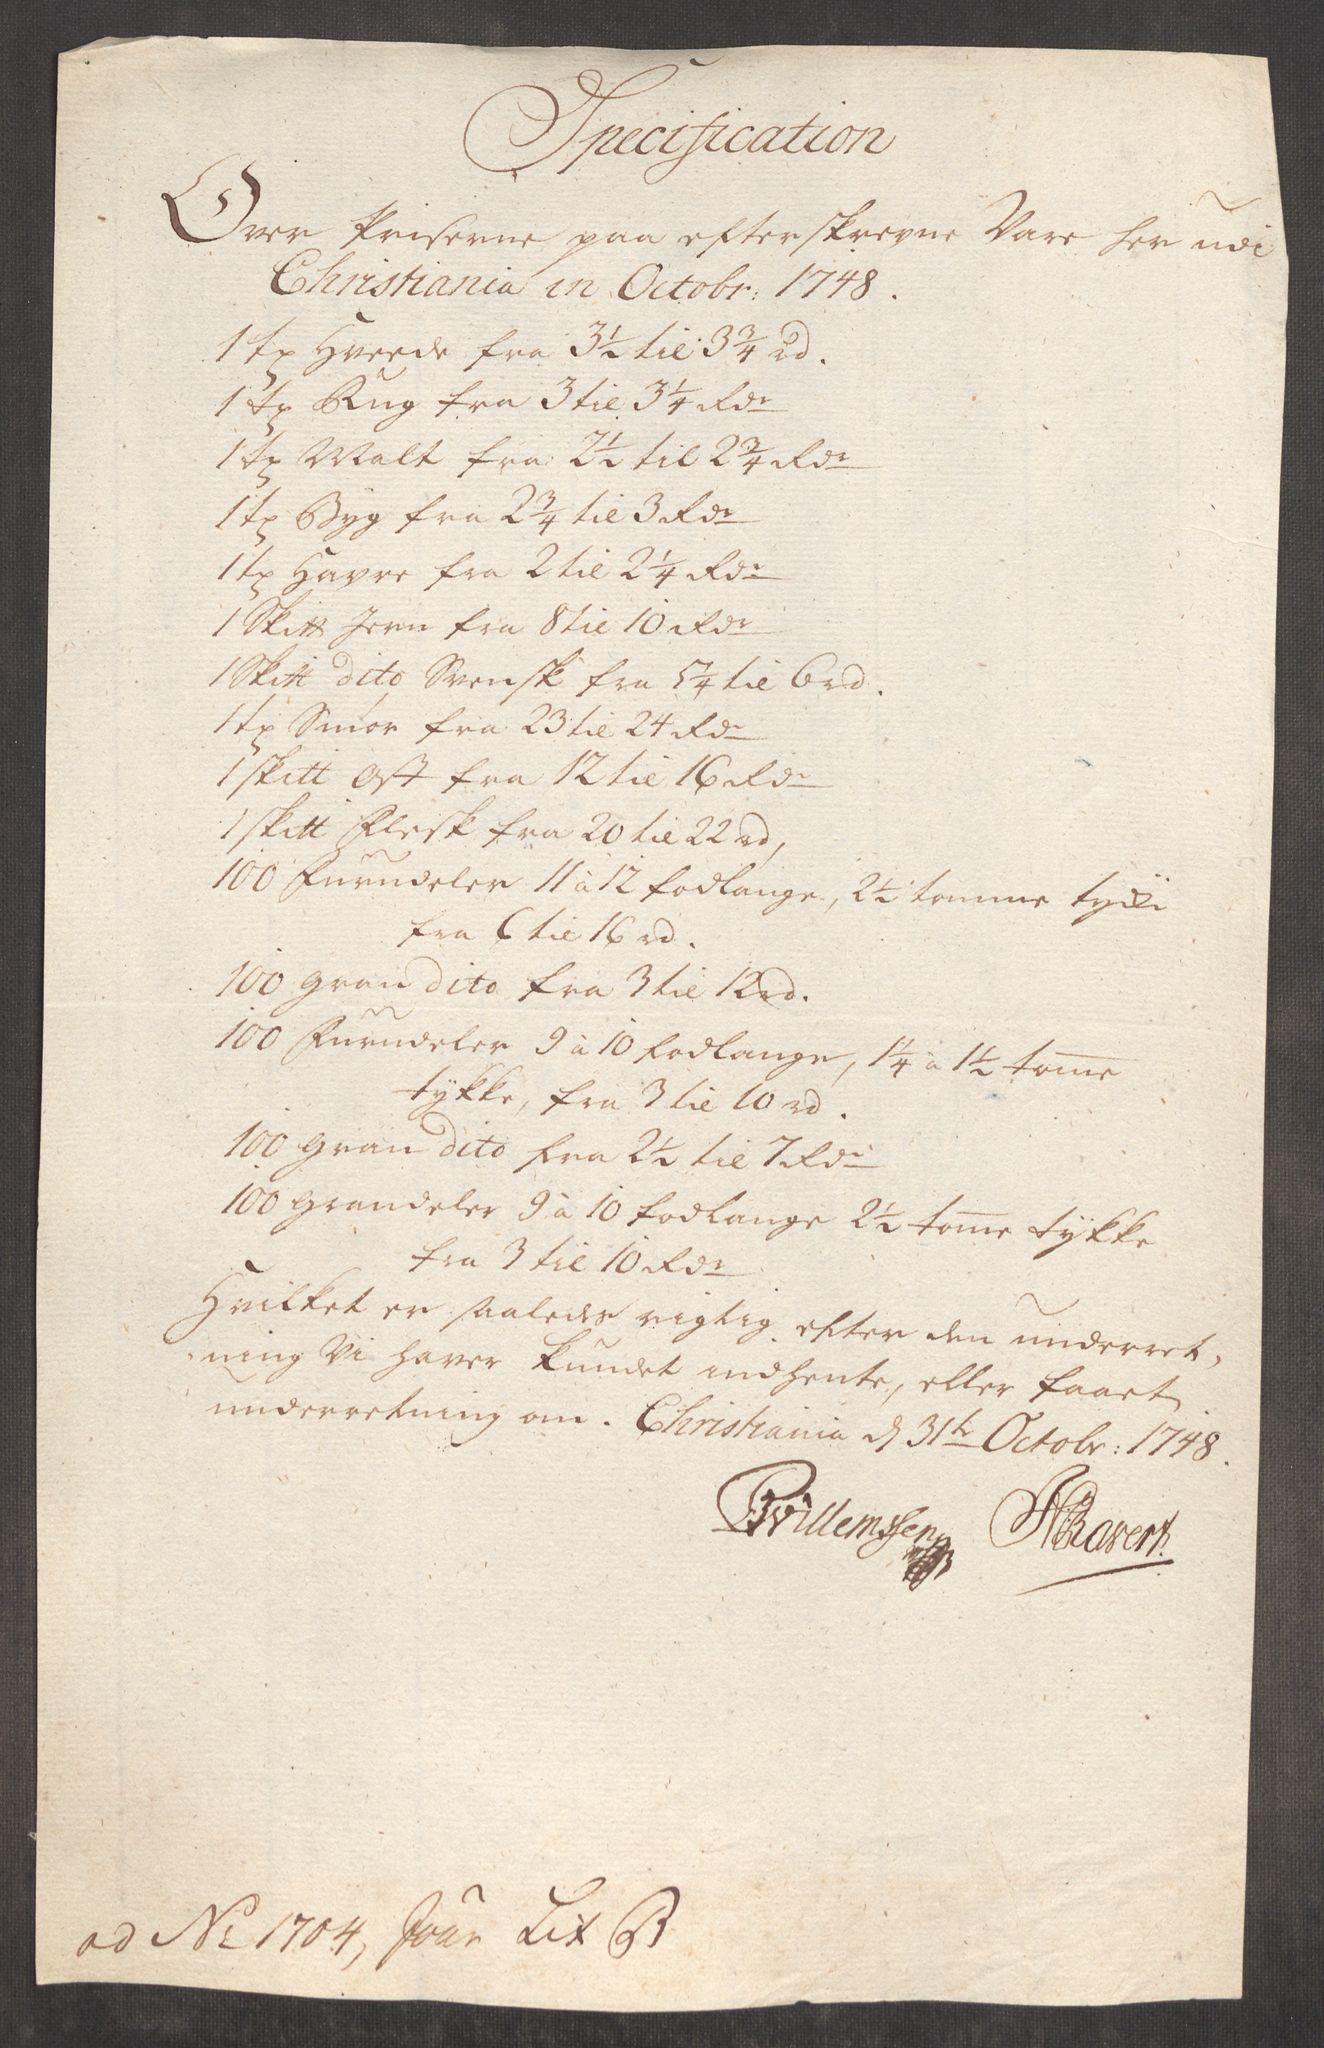 Specification
Over Priserne paa efterskrevne Vare her udi
Christiania in Octobr: 1748.
1 tø Hveede fra 3½ til 3¾ rd.
1 tø Rug fra 3 til 3¼ Rdr
1 tø Malt fra 2½ til 2¾ Rdr
1 tø Byg fra 2¾ til 3 Rdr
1 tø Havre fra 2 til 2¼ Rdr
1 Skitt Jern fra 8 til 10 Rdr
1 Skitt dito Svensk fra 5¼ til 6 rd.
1 tø Smør fra 23 til 24 Rdr
1 skitt Ost fra 12 til 16 Rdr
1 skitt Flesk fra 20 til 22 rd,
100 Furudeler 11 à 12 fodlange, 2½ tomme
fra 6 til 16 rd.
100 gran dito fra 3 til 12 rd.
100 Furudeler 9 à 10 fodlange, 1¼ à 1½ tome
tykke, fra 3 til 10 rd.
100 gran dito fra 2½ til 7 Rdr
100 grandeler 9 à 10 fodlange 2½ tome tykke
fra 3 til 10 Rdr
Hvilket er saaledes rigtig efter den underret,
ning Vi haver kundet indhente, eller faaet
underretning om. Christiania d 31te Octobr: 1748.
Willemssen NRavert.
ad No 1704, Jour Lit B